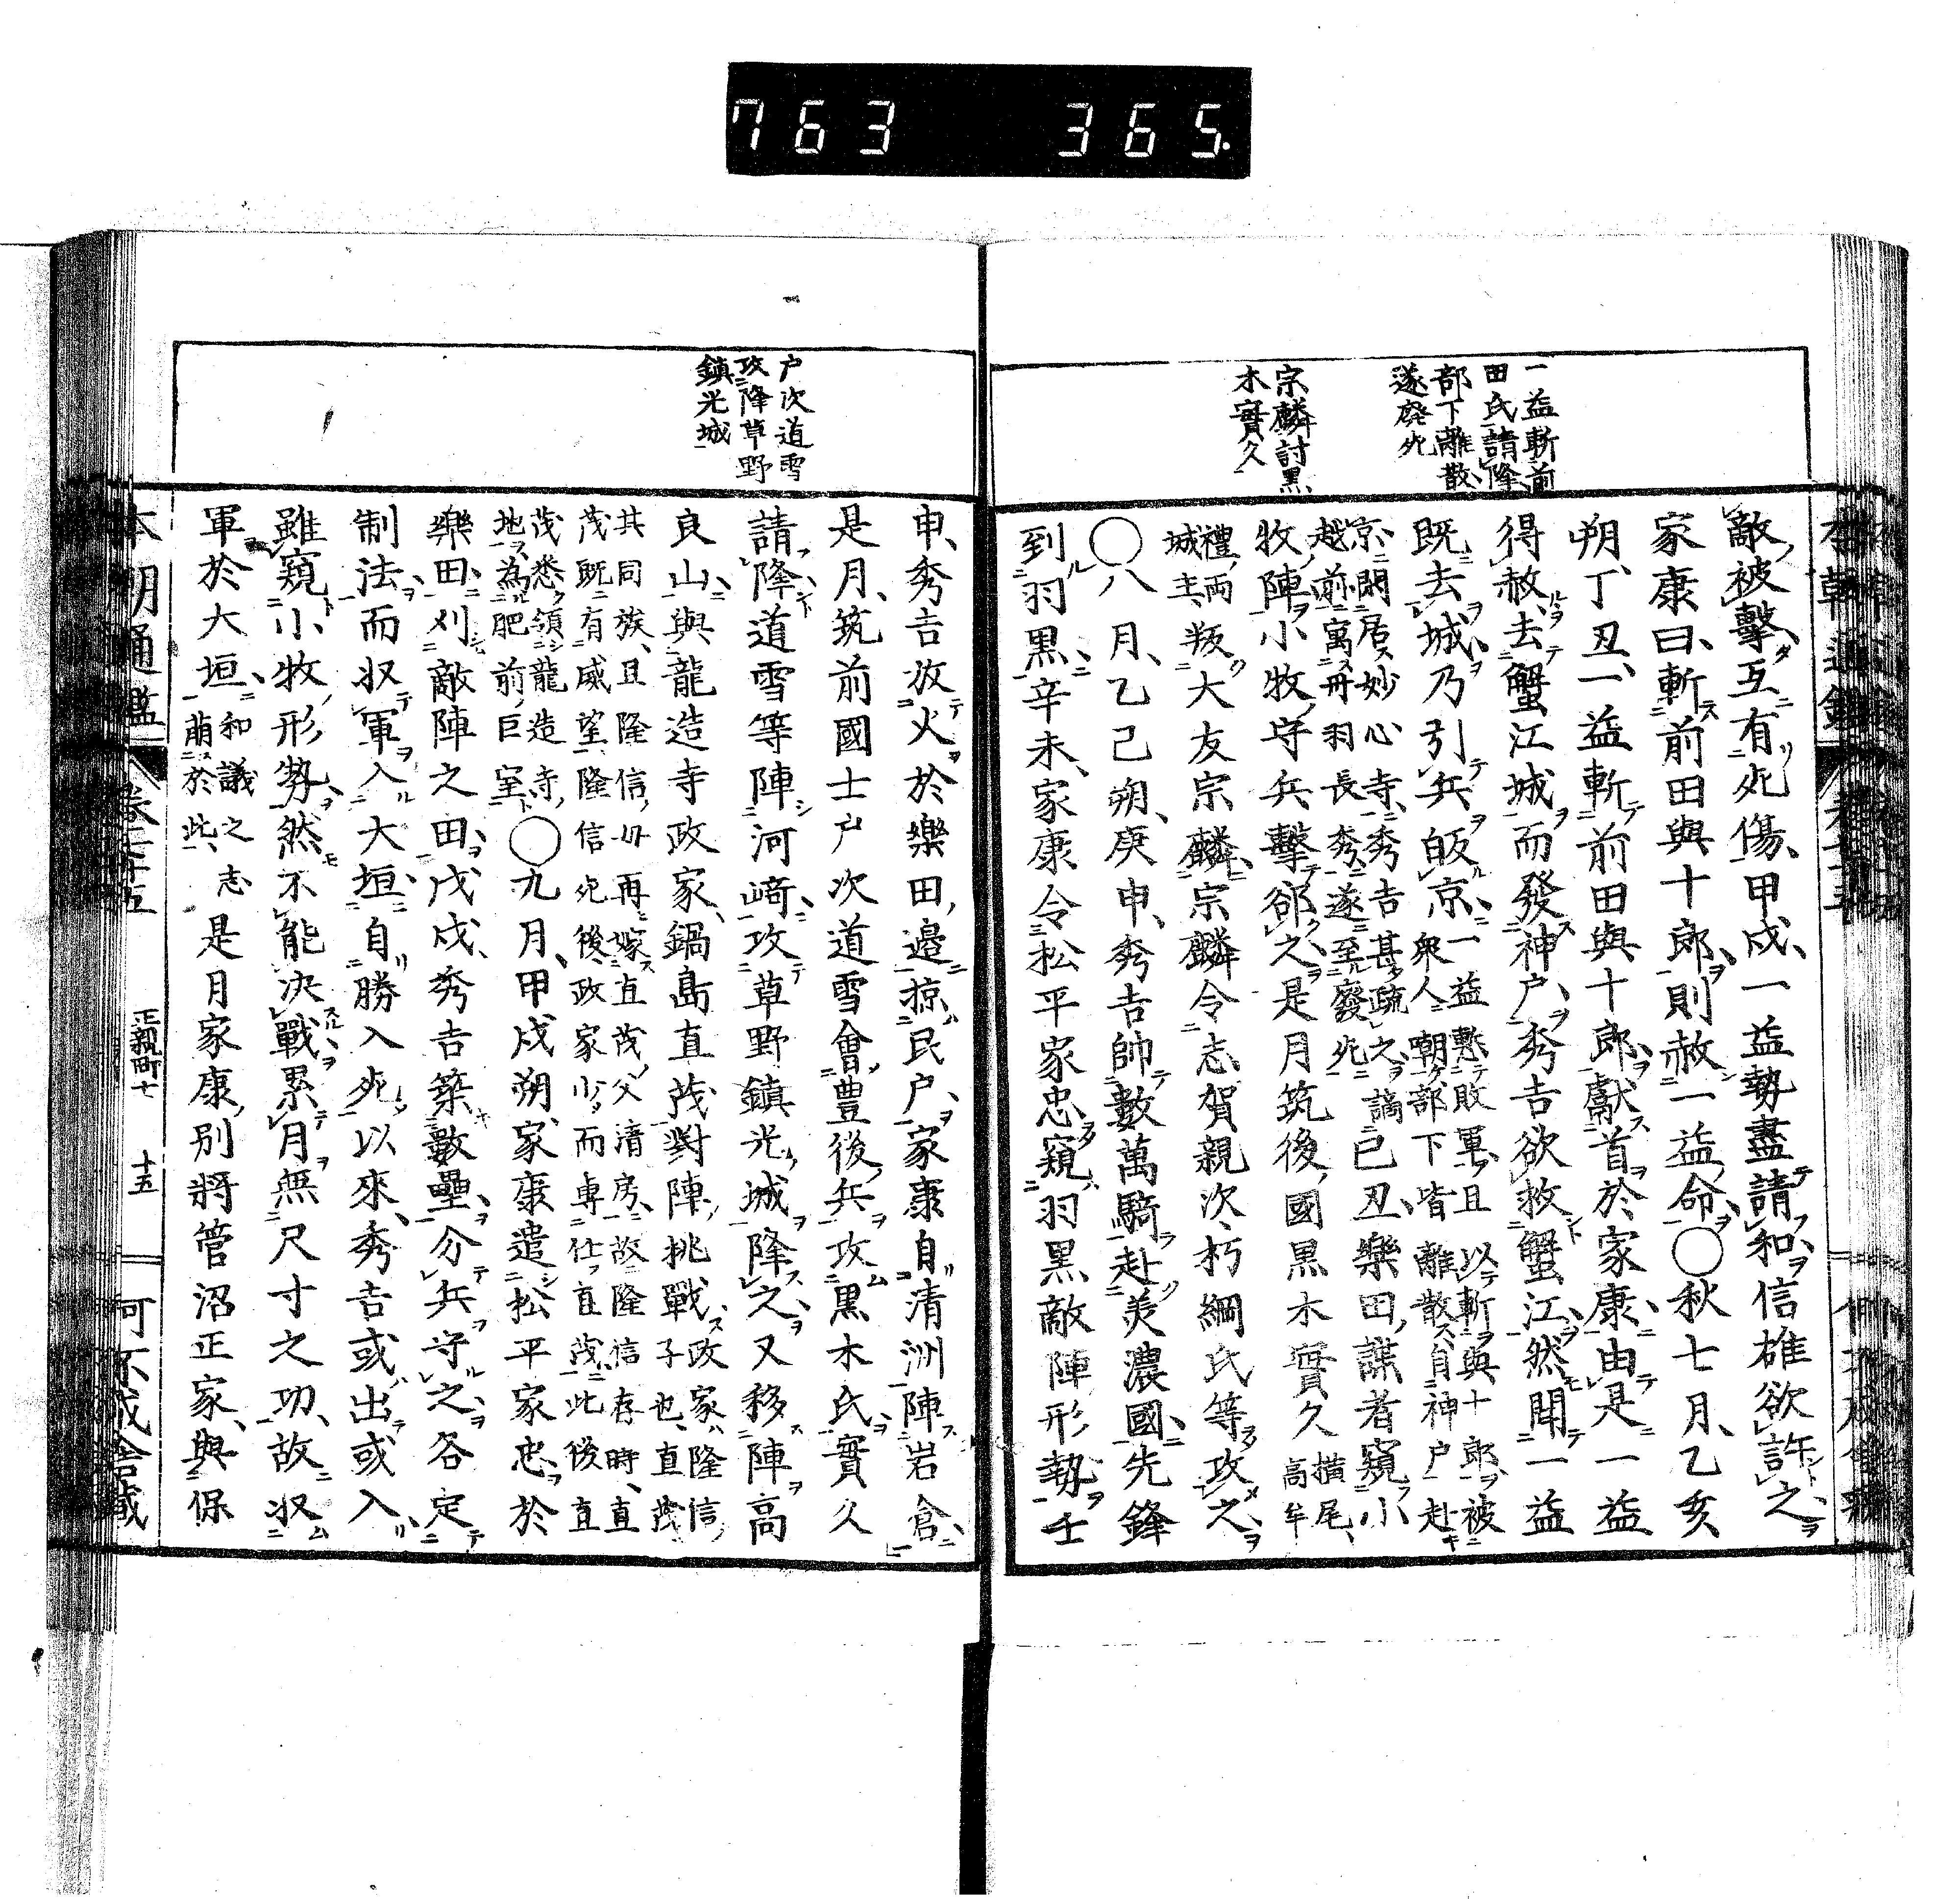 763 365.
一益斬前
田氏請降
部下離散
遂廢死
宗麟討黒
木實久
敵被擊互有死傷、甲戌、一益勢盡請和信雄欲許之
家康曰、斬前田與十郎則赦一益命○秋七月、乙亥、
朔、丁丑、一益斬前田與十郎獻首於家康、由是一益
得赦、去蟹江城而發神戸、秀吉欲救蟹江、然聞一益
既去城、乃引兵皈京、一益慙敗軍、且以斬與十郎被
衆人嘲、部下皆離散、自神戸赴
京、閑居妙心寺、秀吉甚疏之、謫
越前、寓丹羽長秀、遂至廢死
己丑、樂田謀者窺小
牧陣、小牧守兵擊郤之、是月筑後國黒木實久
横尾、
高牟
禮、両
城主、
叛大友宗麟、宗麟令志賀親次、朽綱氏等攻之、
○八月、乙己朔、庚申、秀吉帥數萬騎赴美濃國、先鋒
到羽黒、辛未、家康令松平家忠窺羽黒敵陣形勢、壬
戸次道雪
攻降草野
鎮光城
申、秀吉放火於樂田邊、掠民戸、家康自清洲陣岩倉、
是月、筑前國士戸次道雪會豊後兵攻黒木氏、實久
請降、道雪等陣河﨑、攻草野鎮光城降之、又移陣高
良山、與龍造寺政家、鍋島直茂對陣、挑戰、
政家、隆信
子也、直茂
其同族、且隆信母再嫁直茂父清房、故隆信存時、直
茂既有威望、隆信死後、政家少而專仕直茂、此後直
茂悉領龍造寺
地、為肥前巨室
○九月、甲戌朔、家康遣松平家忠於
樂田、刈敵陣之田、戊戌、秀吉築數壘、分兵守之、各定
制法、而収軍入大垣、自勝入死以來、秀吉或出或入、
雖窺小牧形勢、然不能決戰、累月無尺寸之功、故収
軍於大垣、
和議之志
萌於此、
是月家康別將管沼正家、與保
本朝通鑑
正親町十 十五